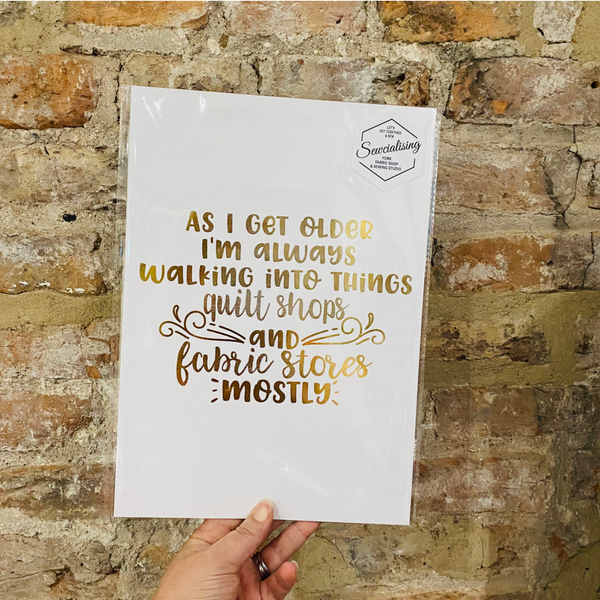 LET'S
GET TOGETHER
& SEW
Sewcialising
YORK
FABRIC SHOP
& SEWING STUDIO
AS I GET OLDER
I'M ALWAYS
WALKING INTO THINGS
quilt shops
AND
fabric stores
MOSTLY